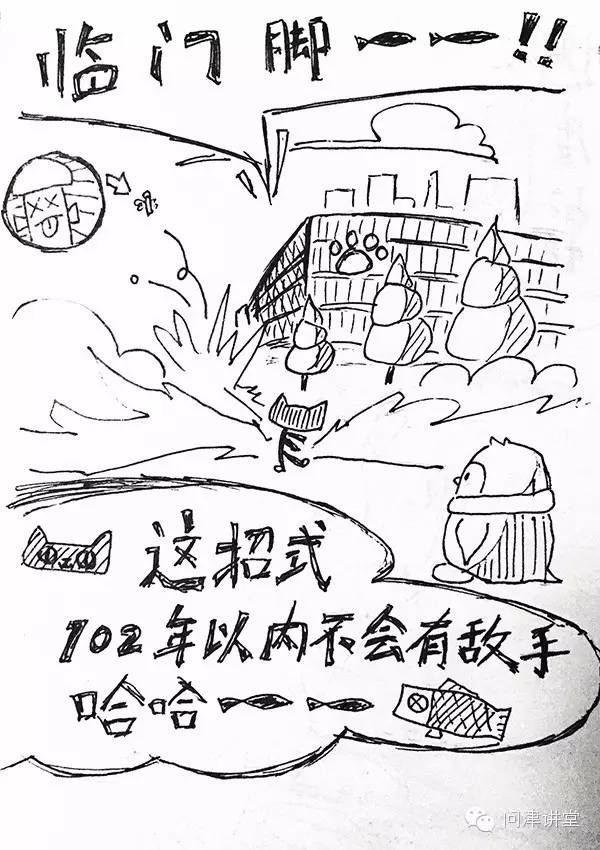 临门脚!!
这招式
102年以内不会有敌手
哈哈
问津讲堂